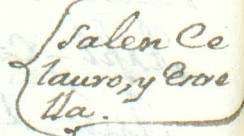 Salen Ce
lauro, y Erae
lla.